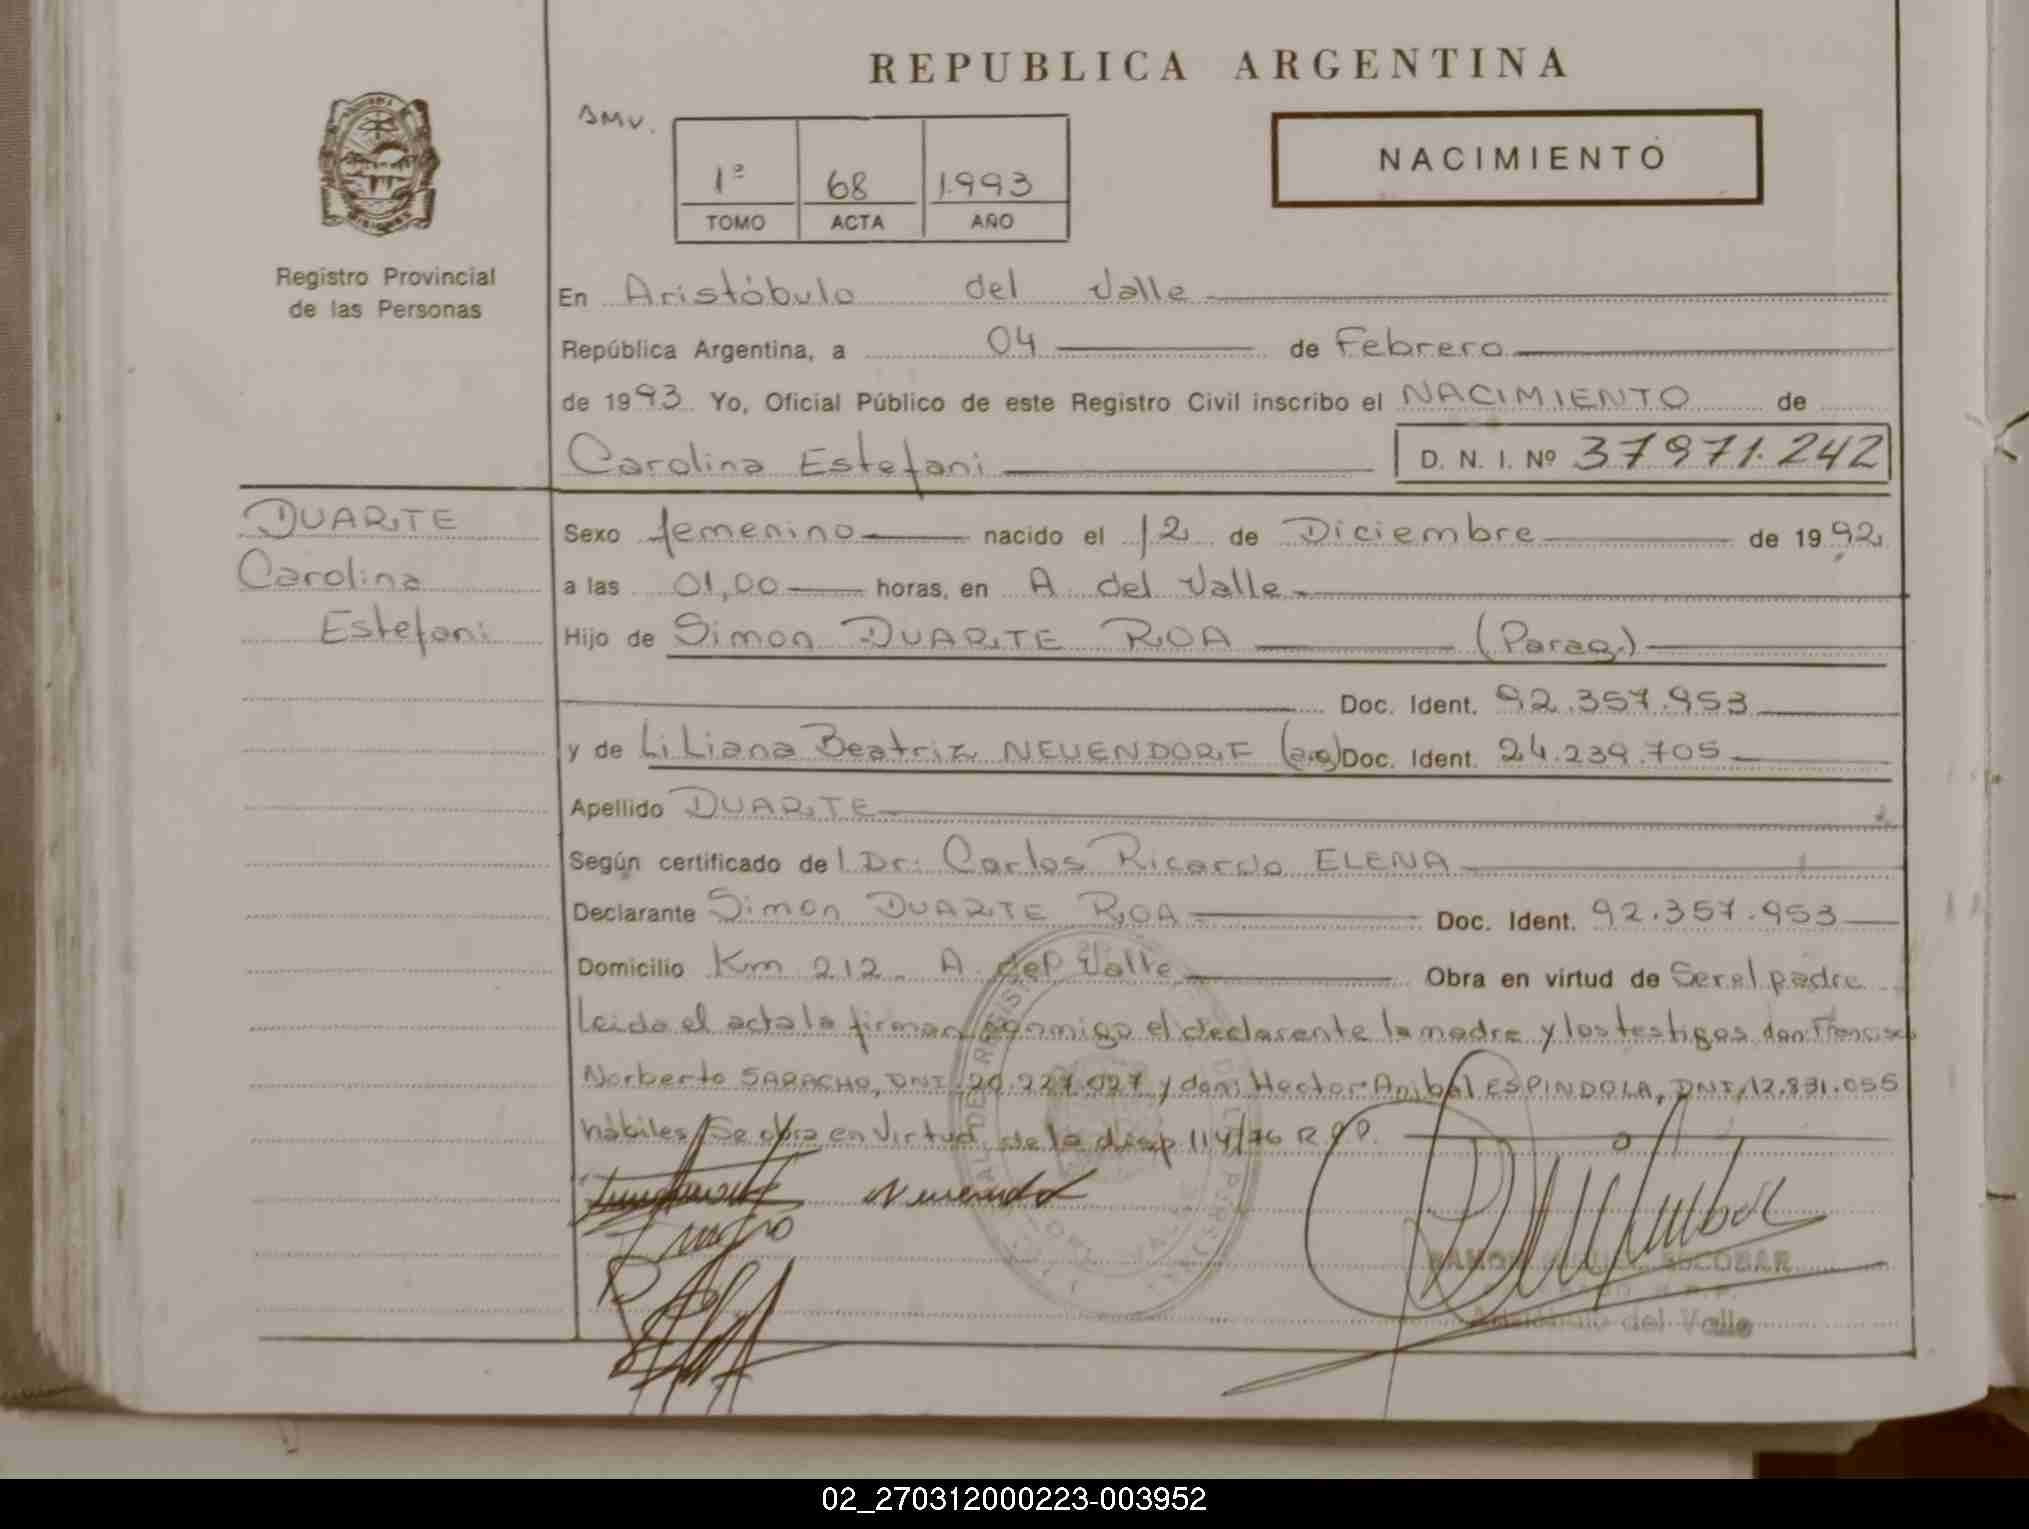 REPUBLICA ARGENTINA
SMV.
NACIMIENTO
1º 68 1.993
TOMO ACTA AÑO
Registro Provincial
de las Personas
En Aristóbulo del Valle
República Argentina, a 04 de Febrero
de 1993 Yo, Oficial Público de este Registro Civil inscribo el NACIMIENTO de
Carolina Estefani D. N. I. Nº 37971.242
DUARTE
Carolina
Estefani
Sexo femenino nacido el 12 de Diciembre de 1992
a las 01,00 horas, en A. del Valle
Hijo de Simon DUARTE ROA (Parag.)
Doc. Ident. 92.357.953
y de Liliana Beatriz NEUENDORF (arg) Doc. Ident. 24.239.705
Apellido DUARTE
Según certificado del Dr: Carlos Ricardo ELENA
Declarante Simon DUARTE ROA Doc. Ident. 92.357.953
Domicilio Km 212 A. del Valle Obra en virtud de Ser el padre
Leida el acta la firman conmigo el declarante la madre y los testigos don: Francisco
Norberto SARACHO, DNI. 20.227.027 y don: Hector Anibal ESPINDOLA, DNI, 12.831.055
hábiles, Se obra en virtud de la disp 114/76 R.P.P.
RAMON MIGUEL ESCOBAR
Aristóbulo del Valle
02_270312000223-003952